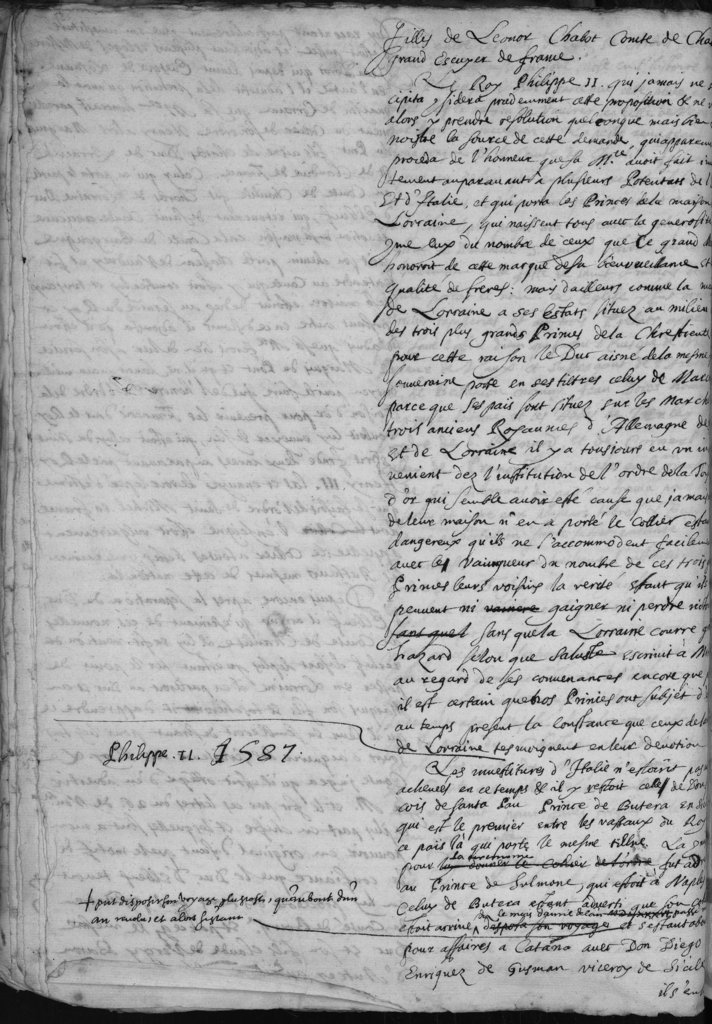 Filles de Leonor Chabot Comte de Cha
grand Escuyer de france.
Le Roy Philippe II. qui jamais ne
cipita, sidera prudemment cette proposition & ne
alors y prendre resolution quelconque mais
noistre la source de cette demande, qui apparem
proceda de l'honneur que sa M.te avoit fait
tement auparavant a plusieurs Potentats de
Et d'Italie, et qui porta les Princes de la maison
Lorraine, qui naissent tous avec la generosité
eux du nombre de ceux que ce grand
honoroit de cette marque de sa bienveillance Et
qualité de freres: mais d'ailleurs comme la
de Lorraine a ses Estats situez au milieu
des trois plus grands Princes de la Chrestienté
pour cette raison le Duc aisné de la mesme
souveraine porte en ses tiltres celuy de Marc
parce que ses pais sont situez sur les March
trois anciens Royaumes d'Allemagne de
Et de Lorraine il y a tousiours eu un in
venient dez l'institution de l'ordre de la Toi
d'or qui semble avoir esté cause que jamais
de leur maison n'en a porté le Collier estant
dangereux qu'ils ne s'accommodent facilem
avec le vainqueur du nombre de ces trois
Princes leurs voisins la verité estant qu'ils
peuvent ni vaincre gaigner ni perdre
sans que la Lorraine courre
hazard selon que Saluste escrivit a
au regard de ses convenances encore que
il est certain que nos Princes ont subject d
au temps present la confiance que ceux de
de Lorraine tesmoignent en leur devotion
Philippe II. 1587.
Les investitures d'Italie n'estoient pas
achevées en ce temps & il y restoit celle de
cois de Santa Pau Prince de Butera en
qui est le premier entre les vassaux du Roy
ce pais là qui porte le mesme tiltre. La
pour luy donner le Collier de l'ordre fut
au Prince de Sulmone, qui estoit à Naples
Celuy de Butera estant adverti que son
estoit arrivé, son voyage et s'estant
pour affaires a Catana avec Don Diego
Enriquez de Gusman viceroy de Sicile
ils
+ put disposer son voyage plus tost, qu'au bout d'un
an revolu, et alors s'estant